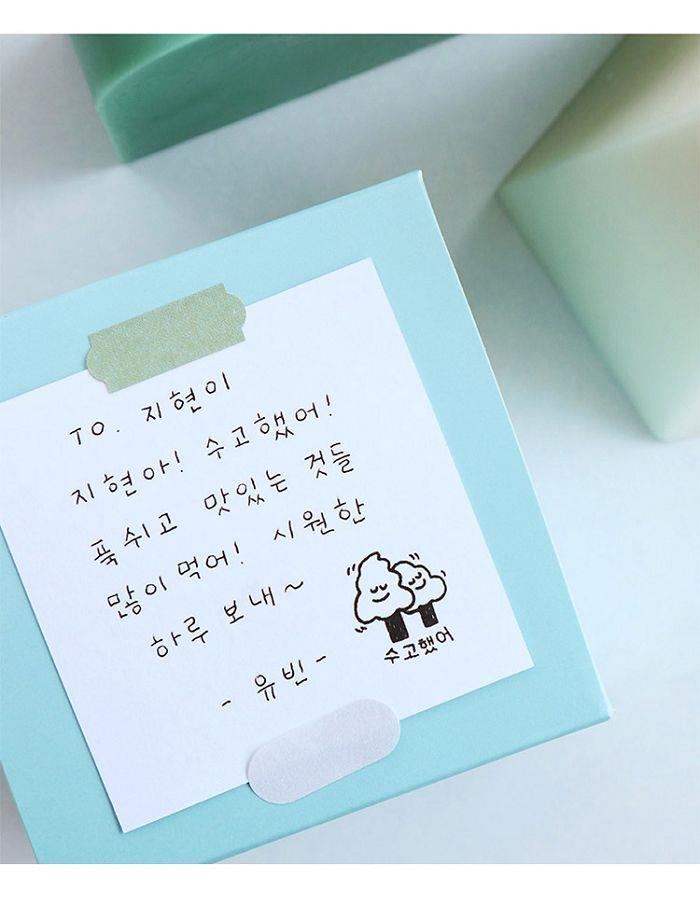 TO. 지현이
지현아! 수고했어!
푹쉬고 맛있는 것들
많이 먹어! 시원한
하루 보내~
- 유빈 -
수고했어